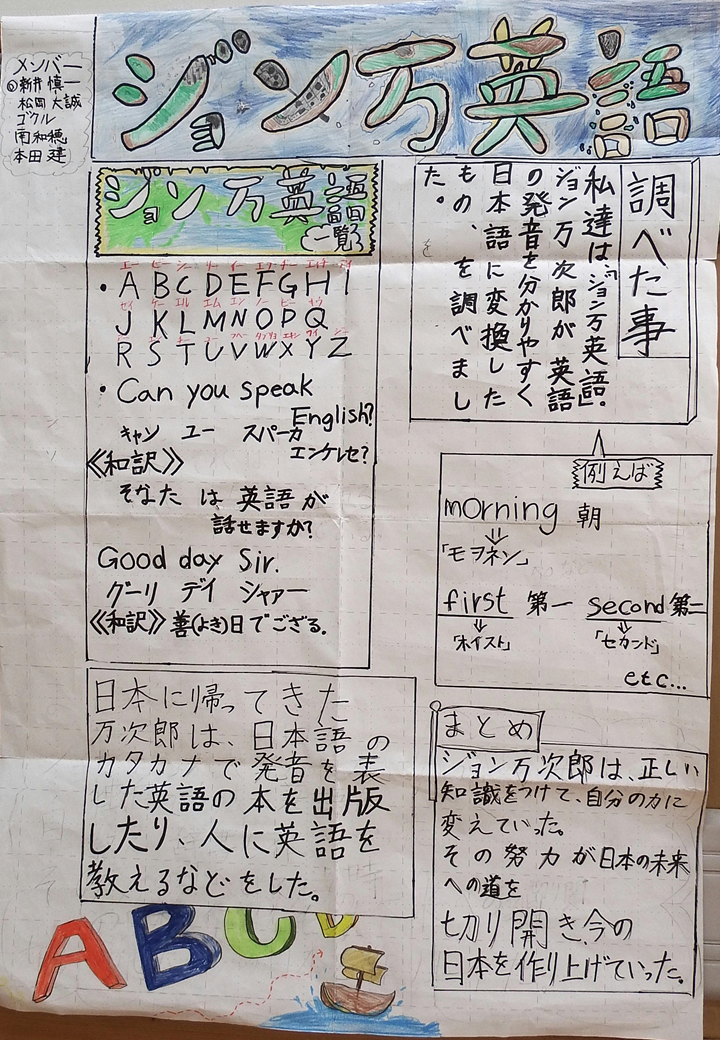 ジョン万英語
メンバー
◎新井 慎一
松岡 大誠
ゴクル
南 和穂
本田 建
調べた事
私達は「ジョン万英語」。
ジョン万次郎が英語
の発音を分かりやすく
日本語に変換した
もの、を調べまし
た。
ジョン万英語
一覧
・A B C D E F G H I
J K L M N O P Q
R S T U V W X Y Z
・Can you speak
English?
キャン ユー スパーカ
エンケレセ?
《和訳》
そなた は 英語 が
話せますか?
Good day Sir.
グーリ デイ シャアー
《和訳》善(よき)日でござる.
例えば
morning 朝
⇓
「モヲネン」
first 第一 second 第二
⇓ ⇓
「ホイスト」 「セカンド」
etc...
日本に帰ってきた
万次郎は、日本語の
カタカナで発音を表
した英語の本を出版
したり、人に英語を
教えるなどをした。
まとめ
ジョン万次郎は、正しい
知識をつけて、自分の力に
変えていった。
その努力が日本の未来
への道を
切り開き、今の
日本を作り上げていった。
A B C D